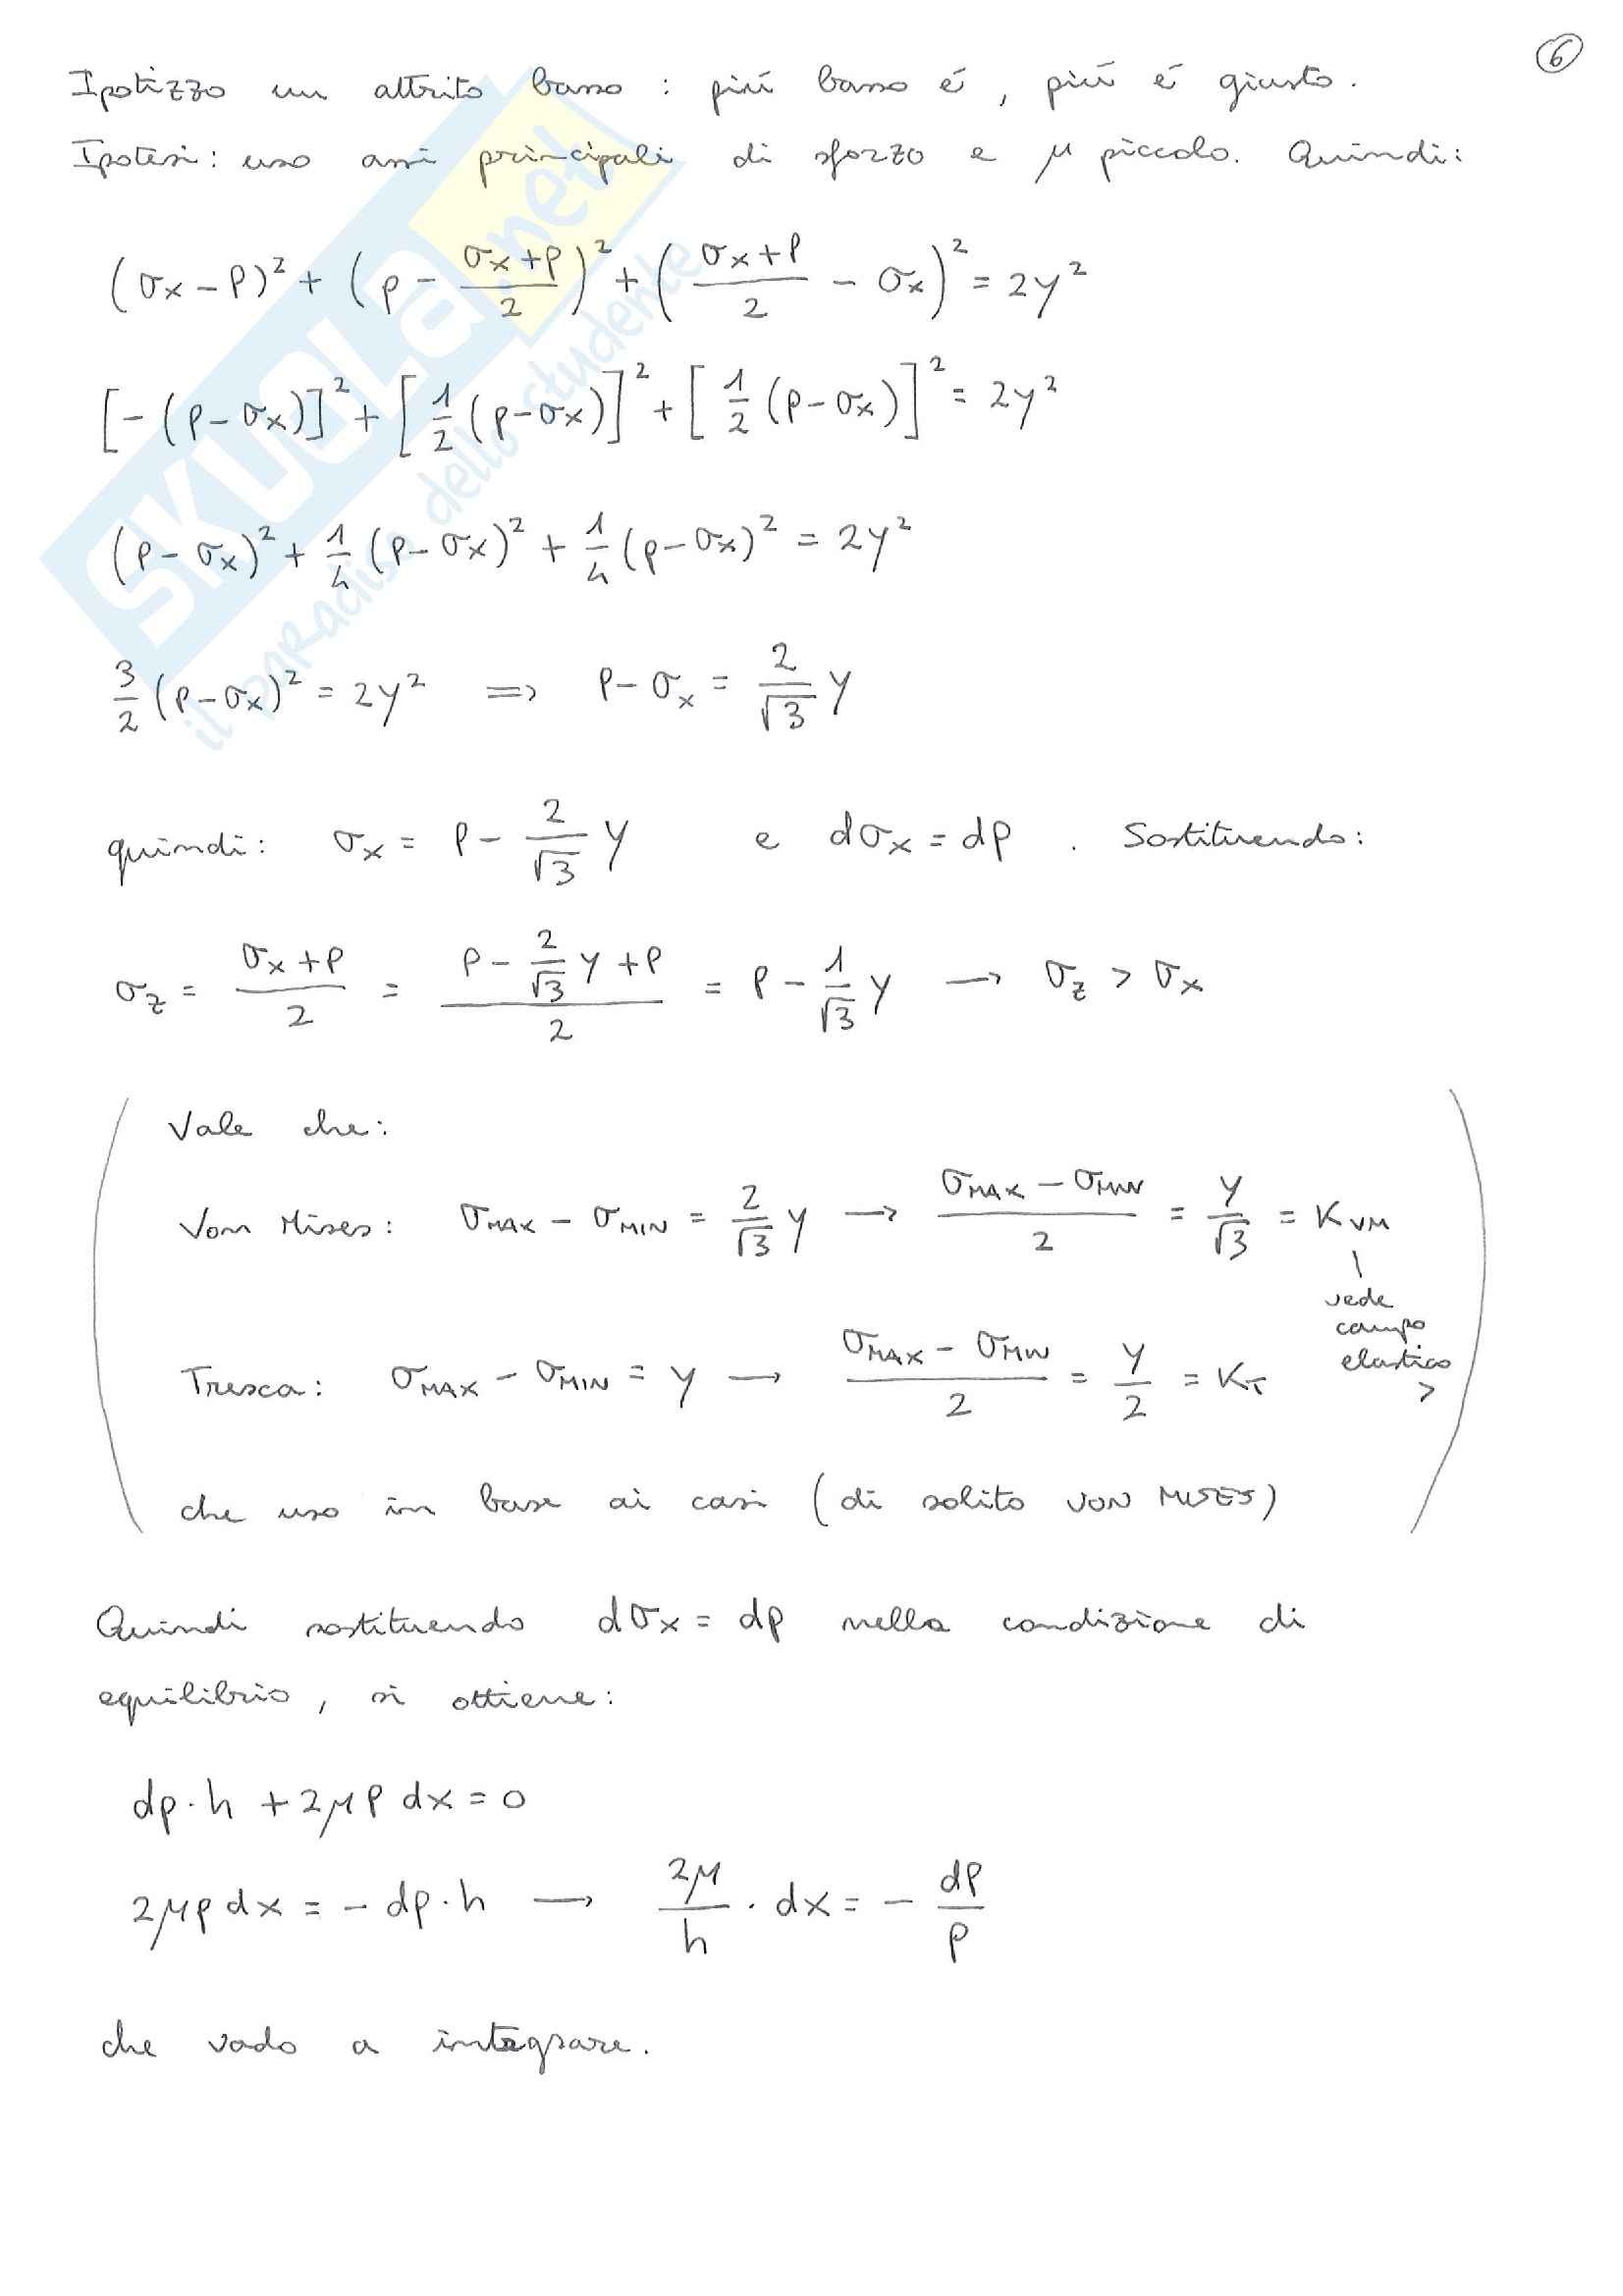 6
Ipotizzo un attrito basso : piú basso é, piú é giusto.
Ipotesi: uso assi principali di sforzo e μ piccolo. Quindi:
(σx - p)² + (p - (σx + p)/2)² + ((σx + p)/2 - σx)² = 2y²
[-(p - σx)]² + [1/2 (p - σx)]² + [1/2 (p - σx)]² = 2y²
(p - σx)² + 1/4 (p - σx)² + 1/4 (p - σx)² = 2y²
3/2 (p - σx)² = 2y² => p - σx = 2/√3 y
quindi: σx = p - 2/√3 y e dσx = dp . Sostituendo:
σz = (σx + p)/2 = (p - 2/√3 y + p)/2 = p - 1/√3 y → σz > σx
Vale che:
Von Mises: σMAX - σMIN = 2/√3 y → (σMAX - σMIN)/2 = y/√3 = KVM
vede
campo
elastico
>
Tresca: σMAX - σMIN = y → (σMAX - σMIN)/2 = y/2 = KT
che uso in base ai casi (di solito VON MISES)
Quindi sostituendo dσx = dp nella condizione di
equilibrio, si ottiene:
dp · h + 2μp dx = 0
2μp dx = - dp · h → 2μ/h · dx = - dp/p
che vado a integrare.
SKUOLA.net
il paradiso dello studente